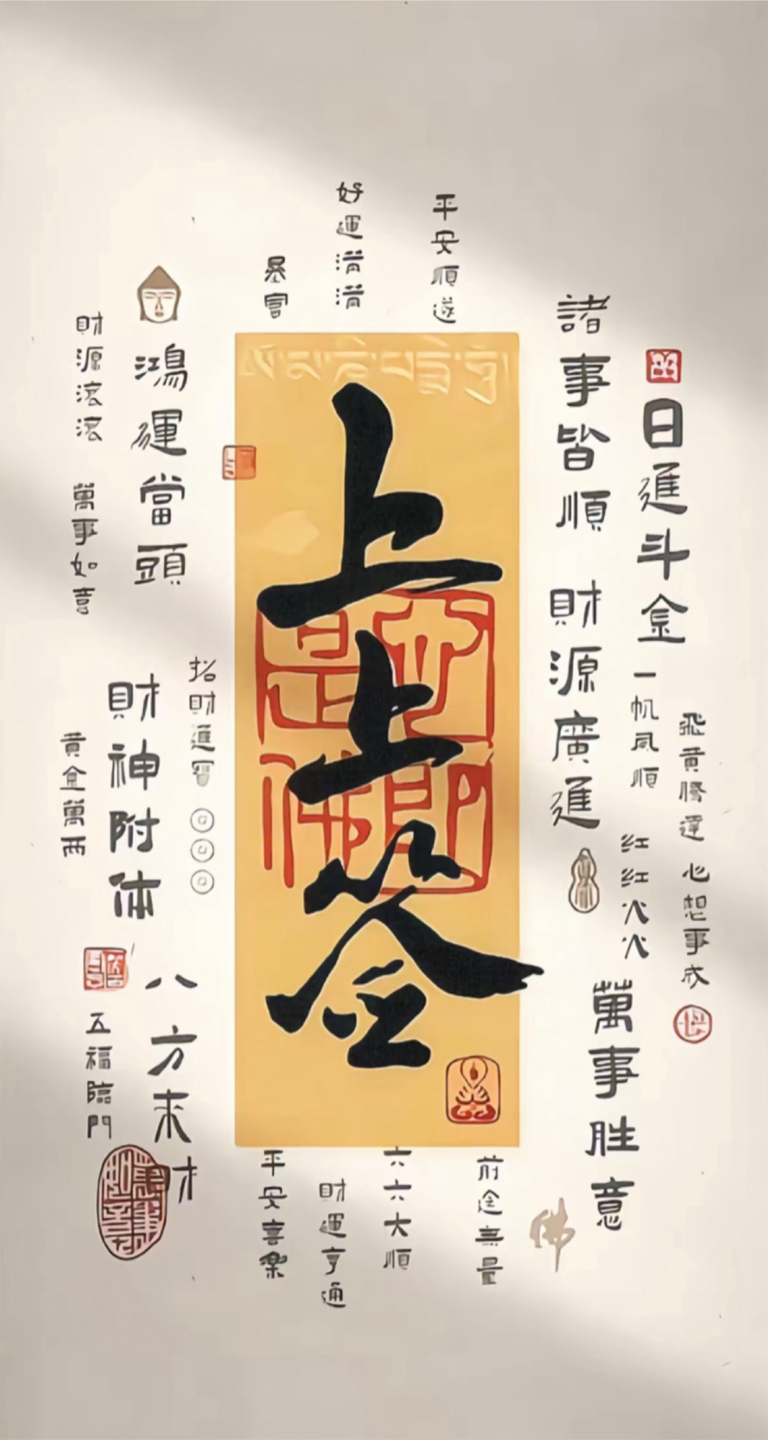 好運潸潸
平安順遂
暴富
諸事皆順
財源廣進
日進斗金
一帆风順
飛黄腾達
心想事成
红红火火
萬事胜意
財源滚滚
鴻運當頭
萬事如喜
招財進寶
財神附体
黄金萬两
八方来財
五福臨門
上上签
平安喜樂
財運亨通
六六大順
前途無量
佛